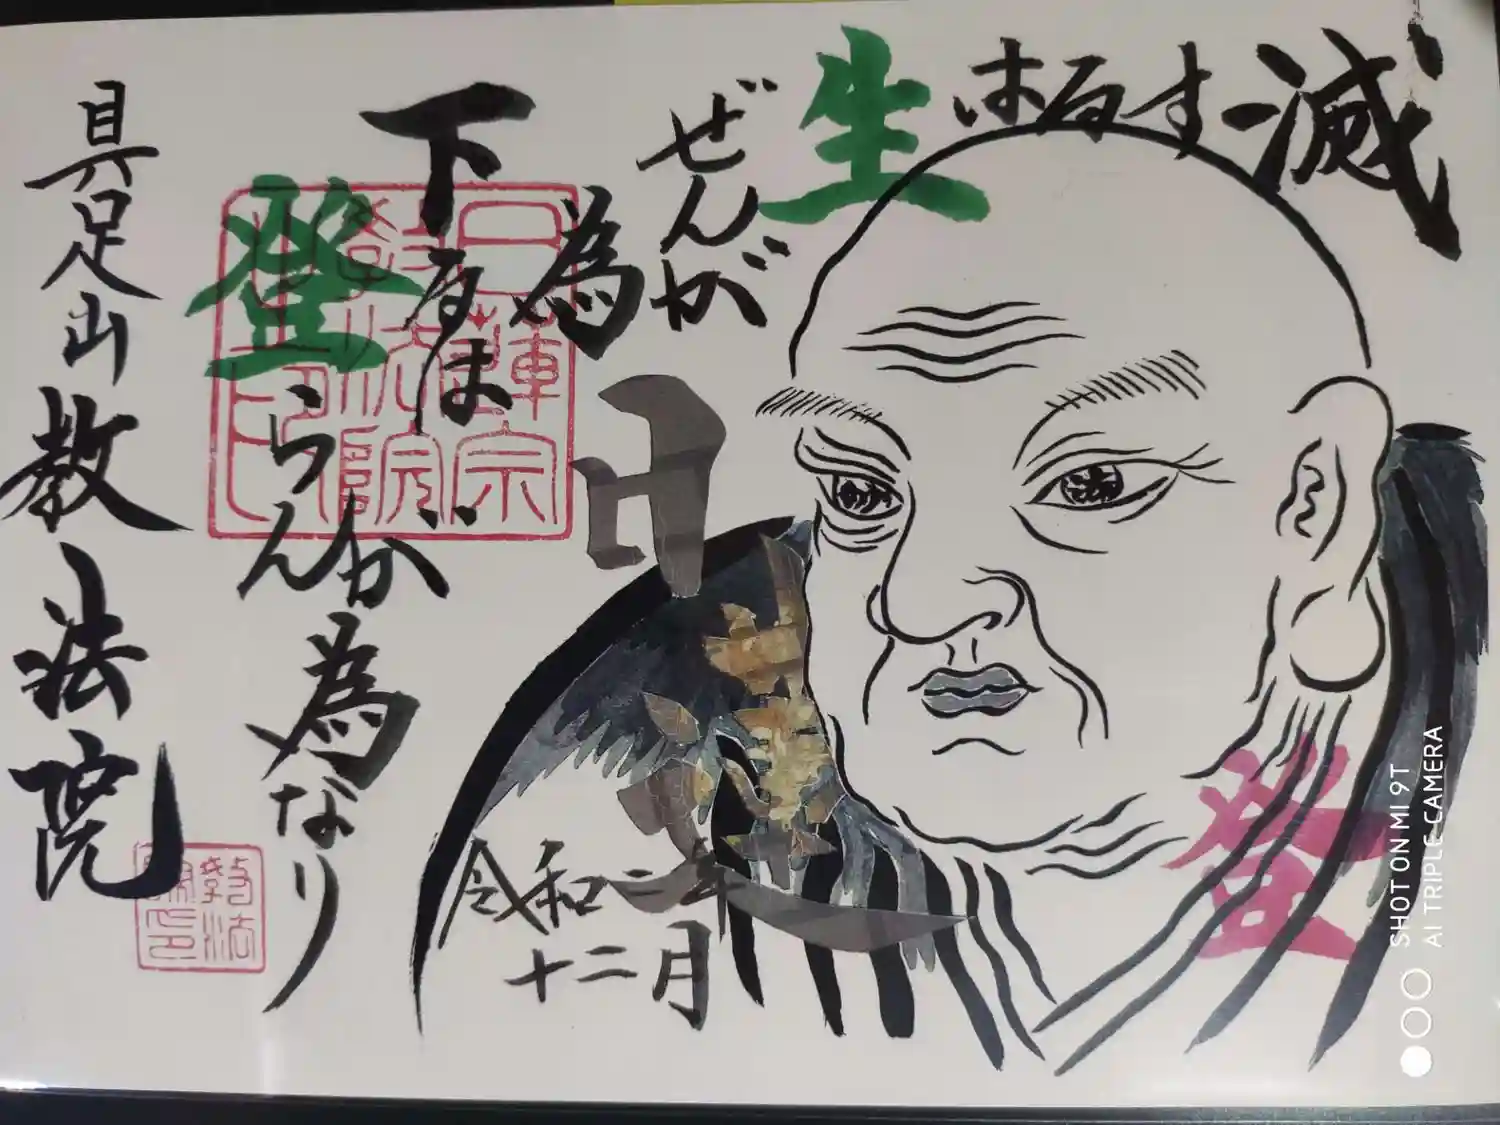 滅するは
生ぜんが為
下るは
登らんが為なり
登
日
令和二年
十二月
具足山 教法院
日蓮宗
教法院
SHOT ON MI 9T
AI TRIPLE CAMERA